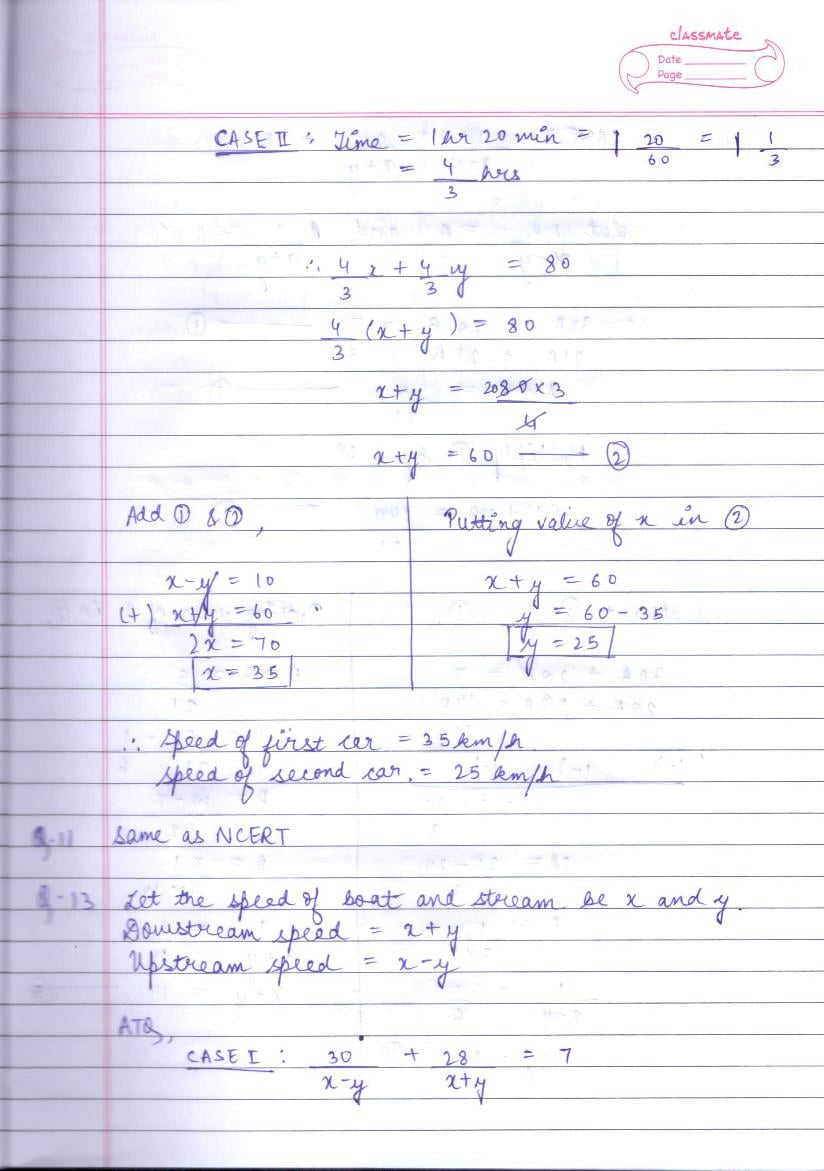 classmate
Date
Page
CASE II : Time = 1 hr 20 min = 1 20/60 = 1 1/3
= 4/3 hrs
∴ 4/3 x + 4/3 y = 80
4/3 (x + y) = 80
x+y = 20 80 × 3 / 4
x+y = 60 —— ②
Add ① & ②,
x-y = 10
(+) x+y = 60
2x = 70
x = 35
Putting value of x in ②
x + y = 60
y = 60 - 35
y = 25
∴ Speed of first car = 35 km/h.
speed of second car. = 25 km/h
Q-11 Same as NCERT
Q-13 Let the speed of boat and stream be x and y.
Downstream speed = x+y
Upstream speed = x-y
ATQ,
CASE I : 30/x-y + 28/x+y = 7